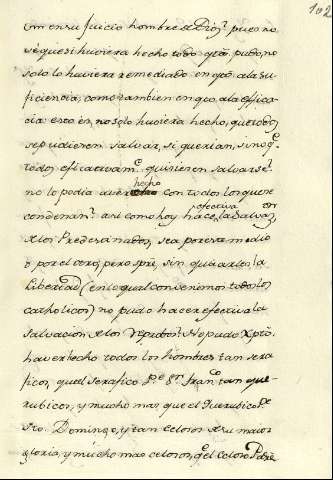 102
en su Juicio hombre de Dios? pues no
vè que si huviera hecho todo qto. pudo, no
solo lo huviera remediado en qto. a la su-
ficiencia, como tambien en qto. a la effica-
cia esto es, no solo huviera hecho, que todos
se pudiesen salvar, si querian, sino q.e
todos efficativam.te quisiesen salvarse?
no lo podia aver hecho con todos los que se
condenan? asi como hoy hace efectiva la Salvaz.on
de los Predestinados, sea por este medio
ò por el otro, pero spre. sin quitarles la
libertad (en lo qual convenimos todos los
catholicos) no pudo hacer efectiva la
salvacion de los reprobos? No pudo Xpto.
haver hecho todos los hombres tan sera-
ficos, qual serafico P.e S.n Fran.co tan que-
rubicos, y mucho mas que el Querubico P.e
Sto. Domingo, y tan celosos de su maior
gloria, y mucho mas celosos, q.e el celoso Padre